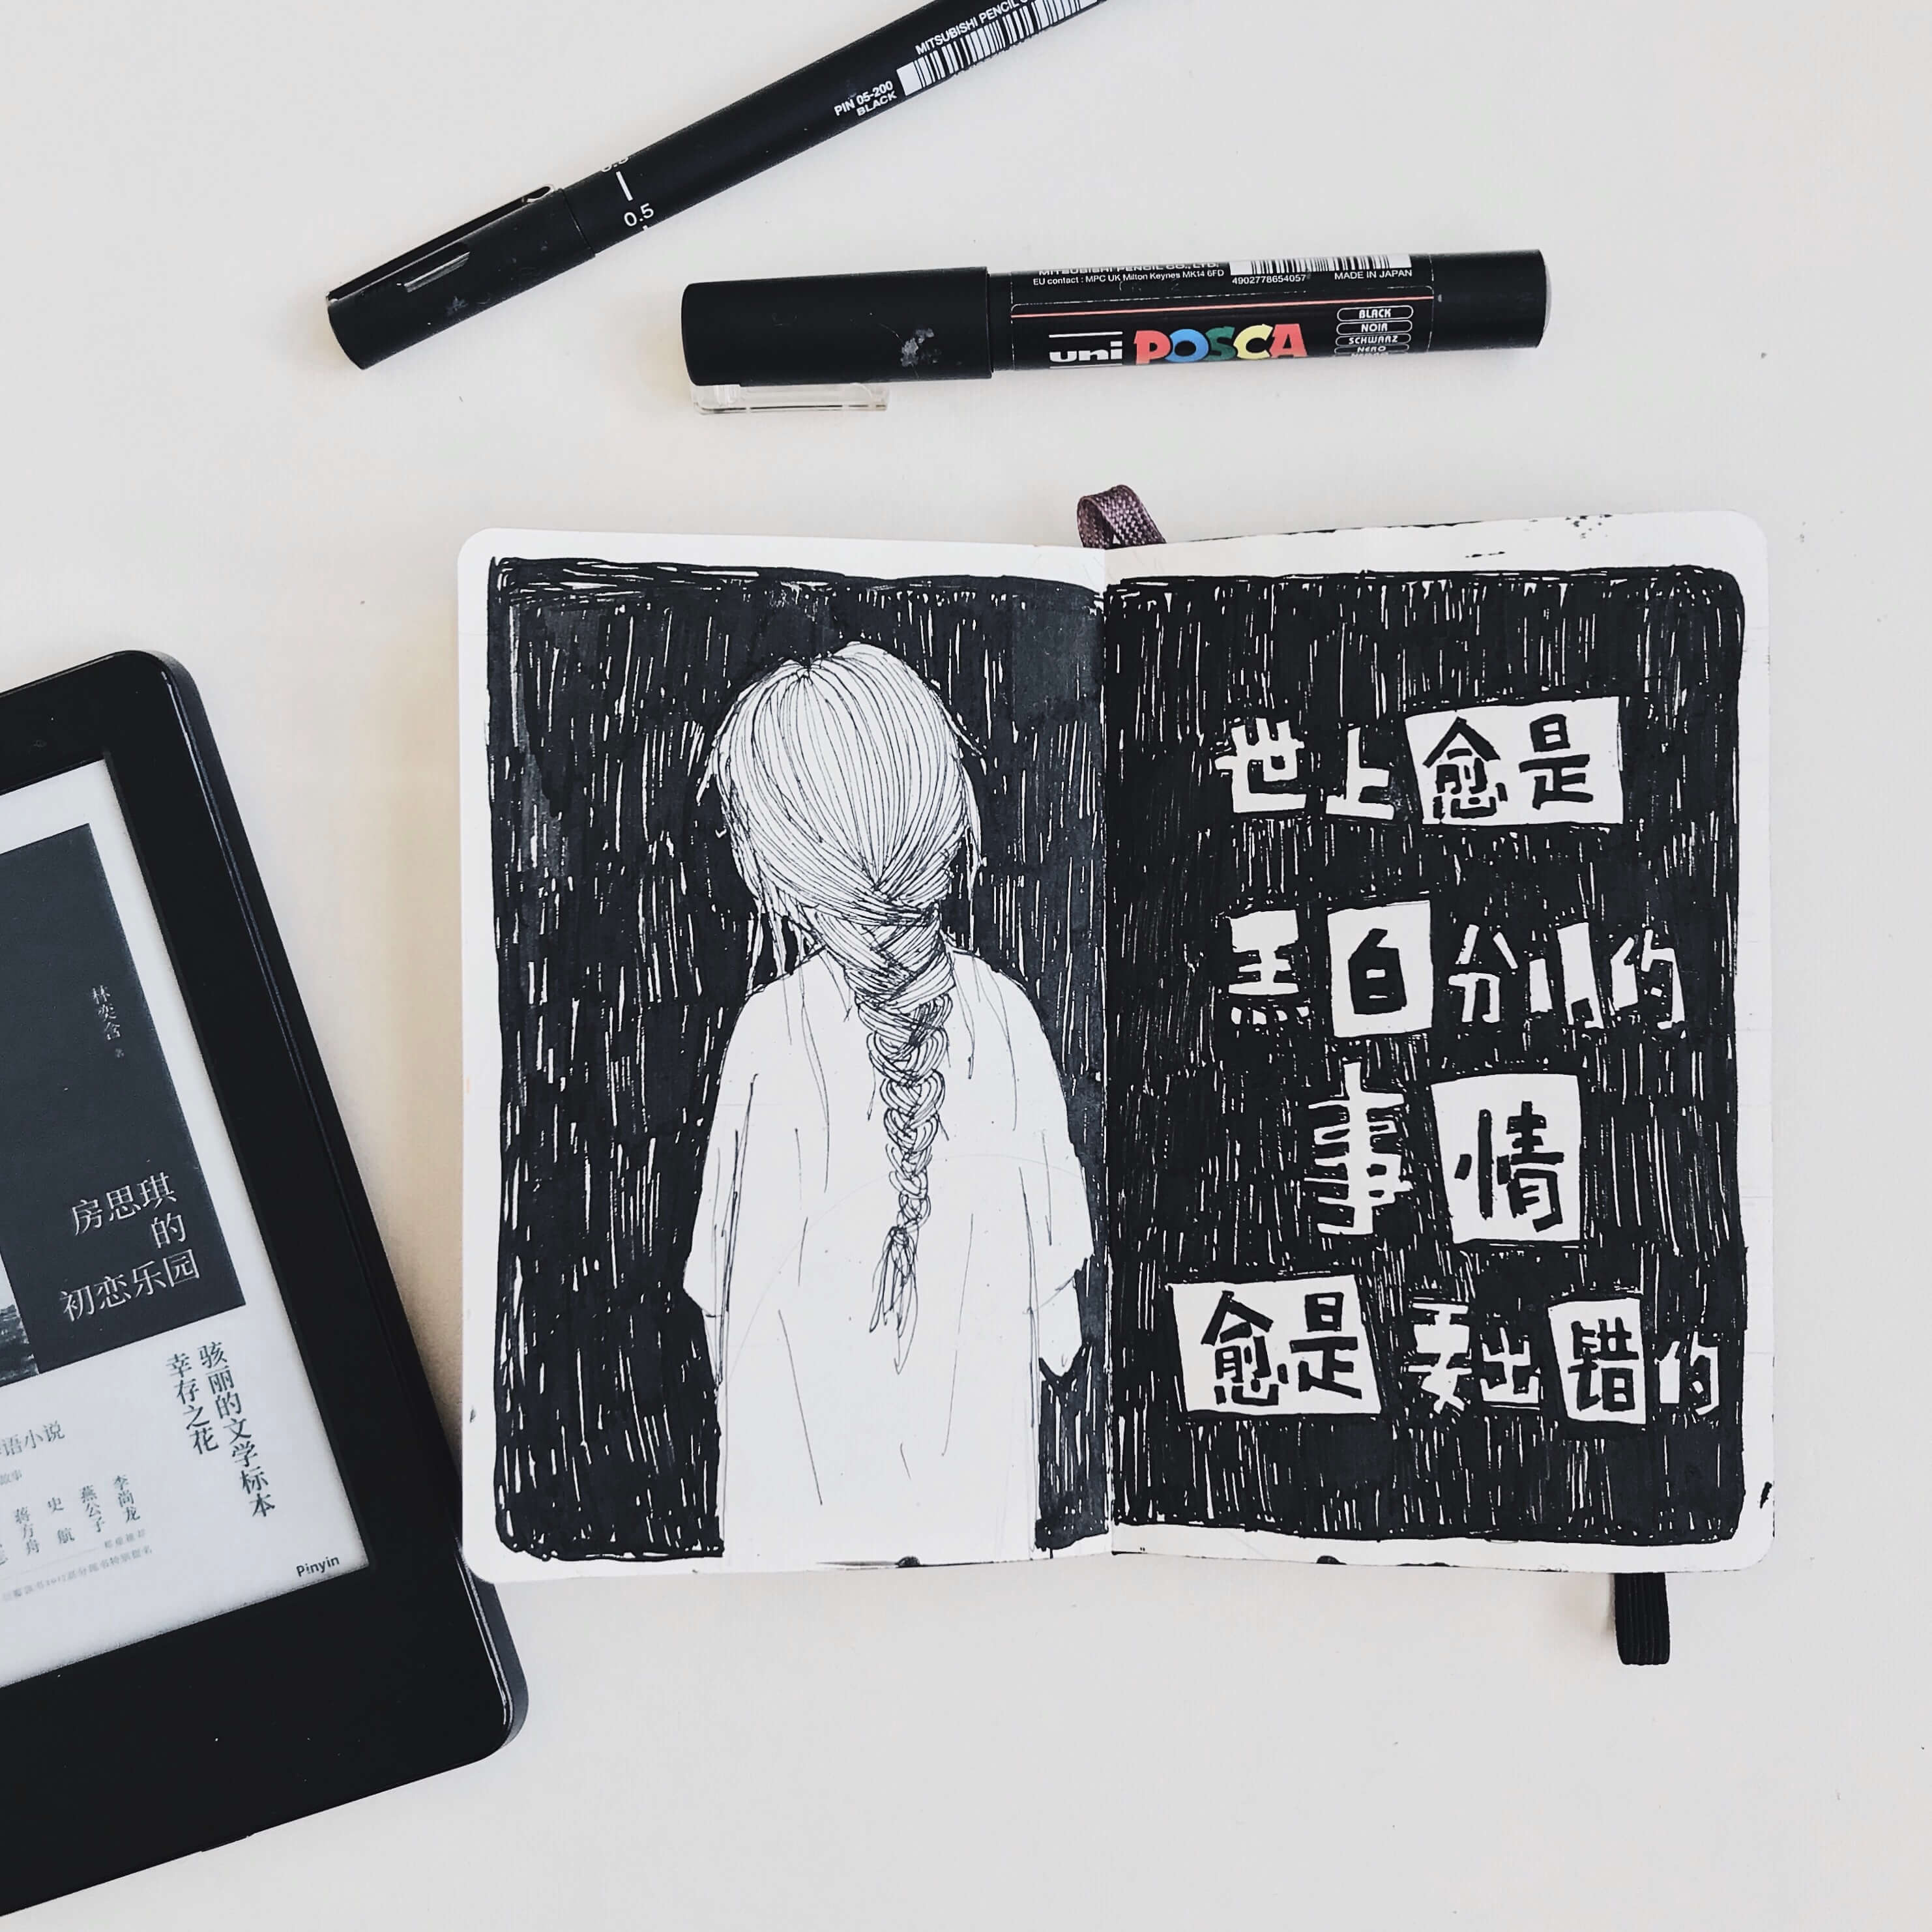 MITSUBISHI PENCIL
PIN 05-200
BLACK
0.5
MITSUBISHI PENCIL CO., LTD.
EU contact : MPC UK Milton Keynes MK14 6FD
4902778654057
MADE IN JAPAN
uni POSCA
BLACK
NOIR
SCHWARZ
NERO
世上愈是
黑白分明的
事情
愈是要出错的
林奕含 著
房思琪
的
初恋乐园
骇丽的文学标本
幸存之花
语小说
故事
李尚龙
燕公子
史航
蒋方舟
Pinyin